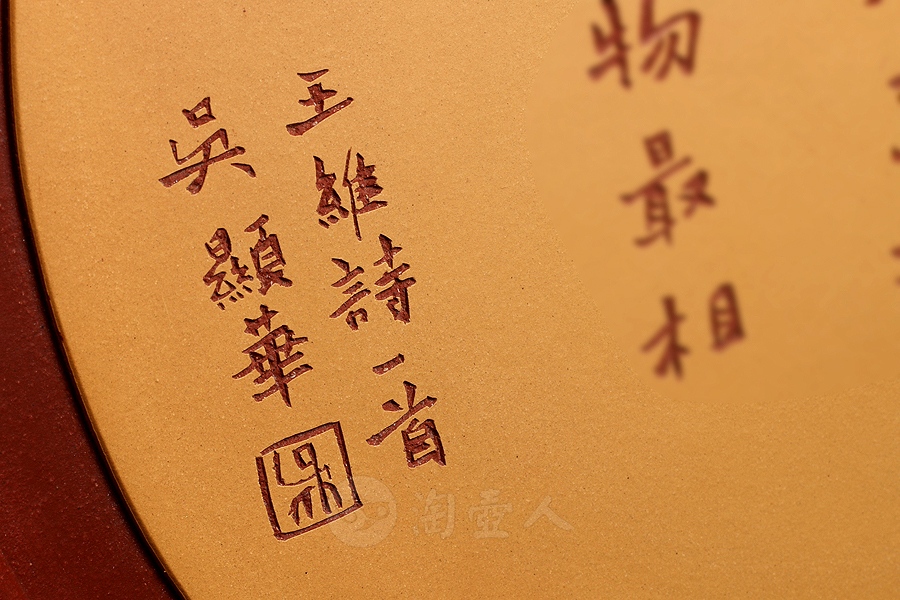 物最相
王維詩一首
吳顯華
淘壺人